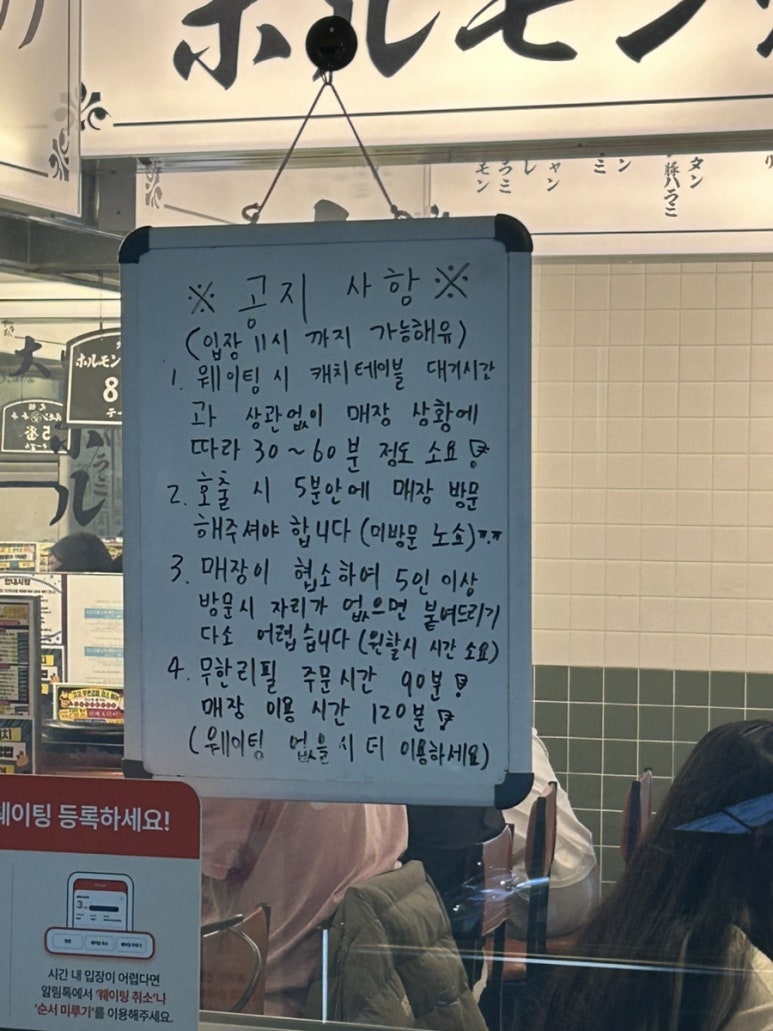 ホルモン
モン
ラミ
ャン
レ
ミン
豚ハラミ
タン
※ 공지 사항 ※
(입장 11시 까지 가능해유)
1. 웨이팅 시 캐치테이블 대기시간
과 상관없이 매장 상황에
따라 30~60분 정도 소요
2. 호출 시 5분안에 매장 방문
해주셔야 합니다 (미방문 노쇼)ㅠ.ㅠ
3. 매장이 협소하여 5인 이상
방문시 자리가 없으면 붙여드리기
다소 어렵습니다 (원할시 시간 소요)
4. 무한리필 주문시간 90분
매장 이용 시간 120분
(웨이팅 없을시 더 이용하세요)
大
ホルモン
8
5番
ラミ
안내사항
웨이팅 등록하세요!
시간 내 입장이 어렵다면
알림톡에서 '웨이팅 취소'나
'순서 미루기'를 이용해주세요.